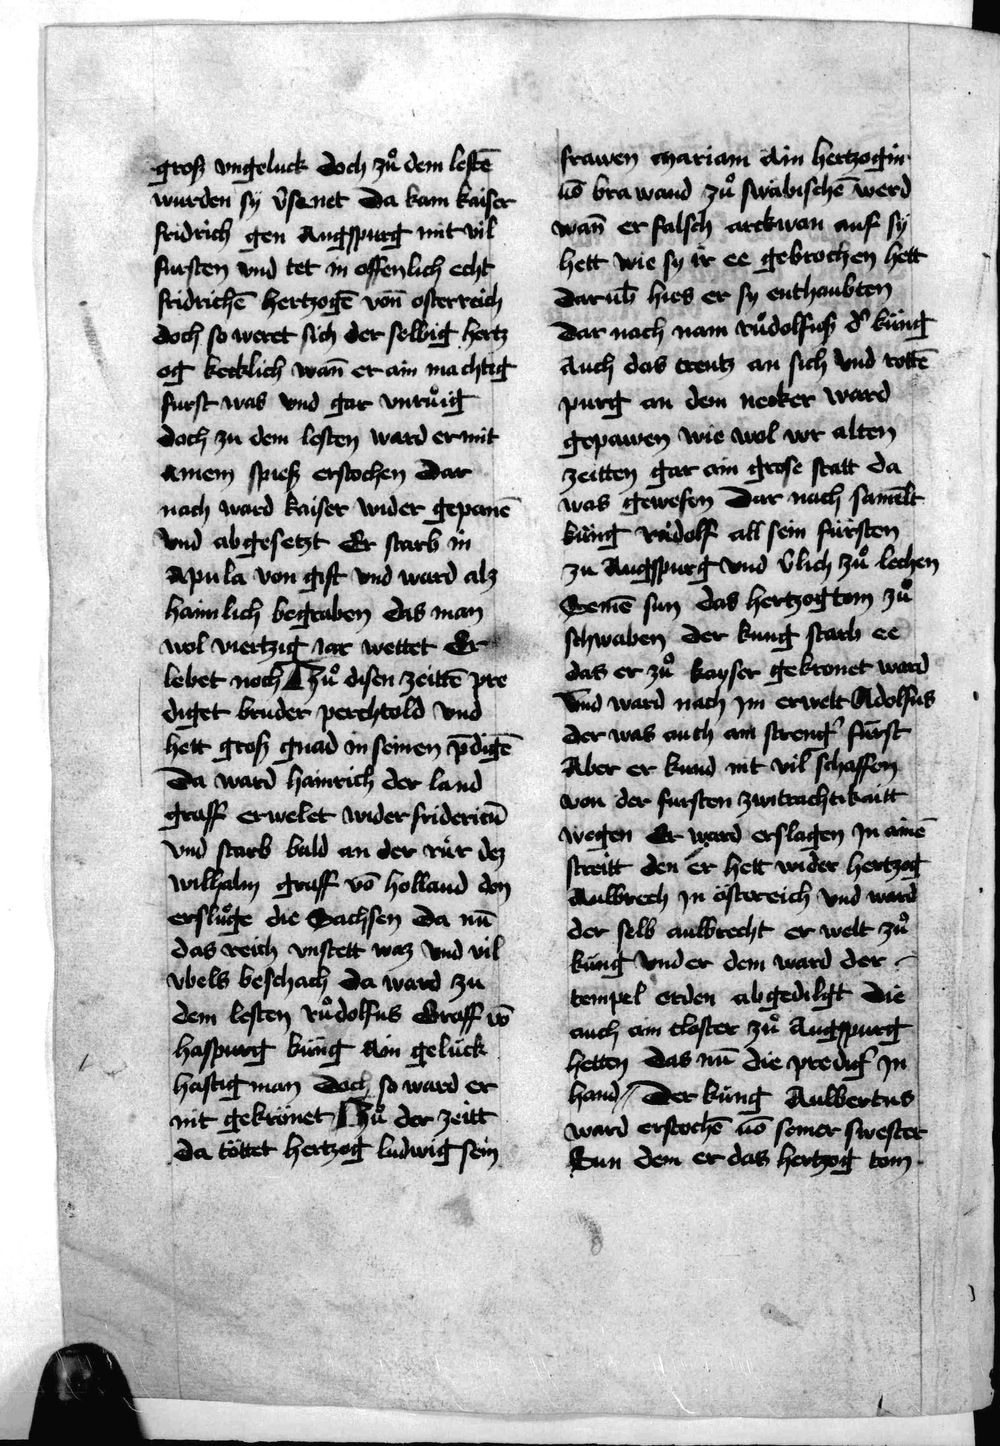 grosz vngeluck doch zuͦ dem lestē
wurden sy v̄sᷓnet Da kam kaiser
fridrich gen Augspurg mit vil
fursten vnd tet in offenlich echt
fridrichē hertzogē von̄ osterreich
doch so weret sich der selbig hertz
og kecklich wan̄ er ain machtig
furst was vnd gar vnruͦig
doch zu dem lesten ward er mit
ainem spiesz erstochen Dar
nach ward kaiser wider gepanē
vnd abgesetzt Er starb in
Apula von gift vnd ward alz
haimlich begraben das man
wol viertzig iar wettet Er
lebet noch Zuͦ disen zeittē pre
diget bruder perchtold vnd
hett grosz gnad in seinen p̄digē
Da ward hainrich der land
graff erwelet wider fridericū
vnd starb bald an der ruͤr dez
wilhalm graff vō holland den
ersluͦge die Sachsen Da nū
das reich vnstett waz vnd vil
vbels beschach Da ward zu
dem lesten ruͦdolfus Graff vō
haspurg küng Ain gelück
hastig man Doch so ward er
nit gekrönet Zuͦ der zeitt
da töttet hertzog ludwig sein
frawen mariam Ain hertzogin
vō brawand zuͦ swäbischē werd
wan̄ er falsch arckwan auf sy
hett wie sy ir ee gebrochen hett
darūb hies er sy enthaubten
Dar nach nam ruͦdolfusz d' küng
auch das creutz an sich vnd rottē
purg an dem necker ward
gepawen wie wol vor alten
zeitten gar ain grose statt da
was gewesen Dar nach samelt
küng ruͦdolf all sein fürsten
zu Augspurg vnd v̄lich zuͦ lechen
Seinē sun das hertzogtom zuͦ
schwaben der kung starb ee
das er zuͦ kayser gekronet ward
vnd ward nach im erwelt Adolfus
der was auch ain streng' fürst
Aber er kund nit vil schaffen
von der fursten zwitrachtikaitt
wegen Er ward erslagen in ainē
streitt den er hett wider hertzog
Aulbrech in östereich vnd ward
der selb aulbrecht er welt zuͦ
küng vnder dem ward der
tempel orden abgedilgt Die
auch ain closter zuͦ Augspurg
hetten das nū die predig' in
hand Der küng Aulbertus
ward erstochē vō seiner swester
Sun dem er das hertzog tom